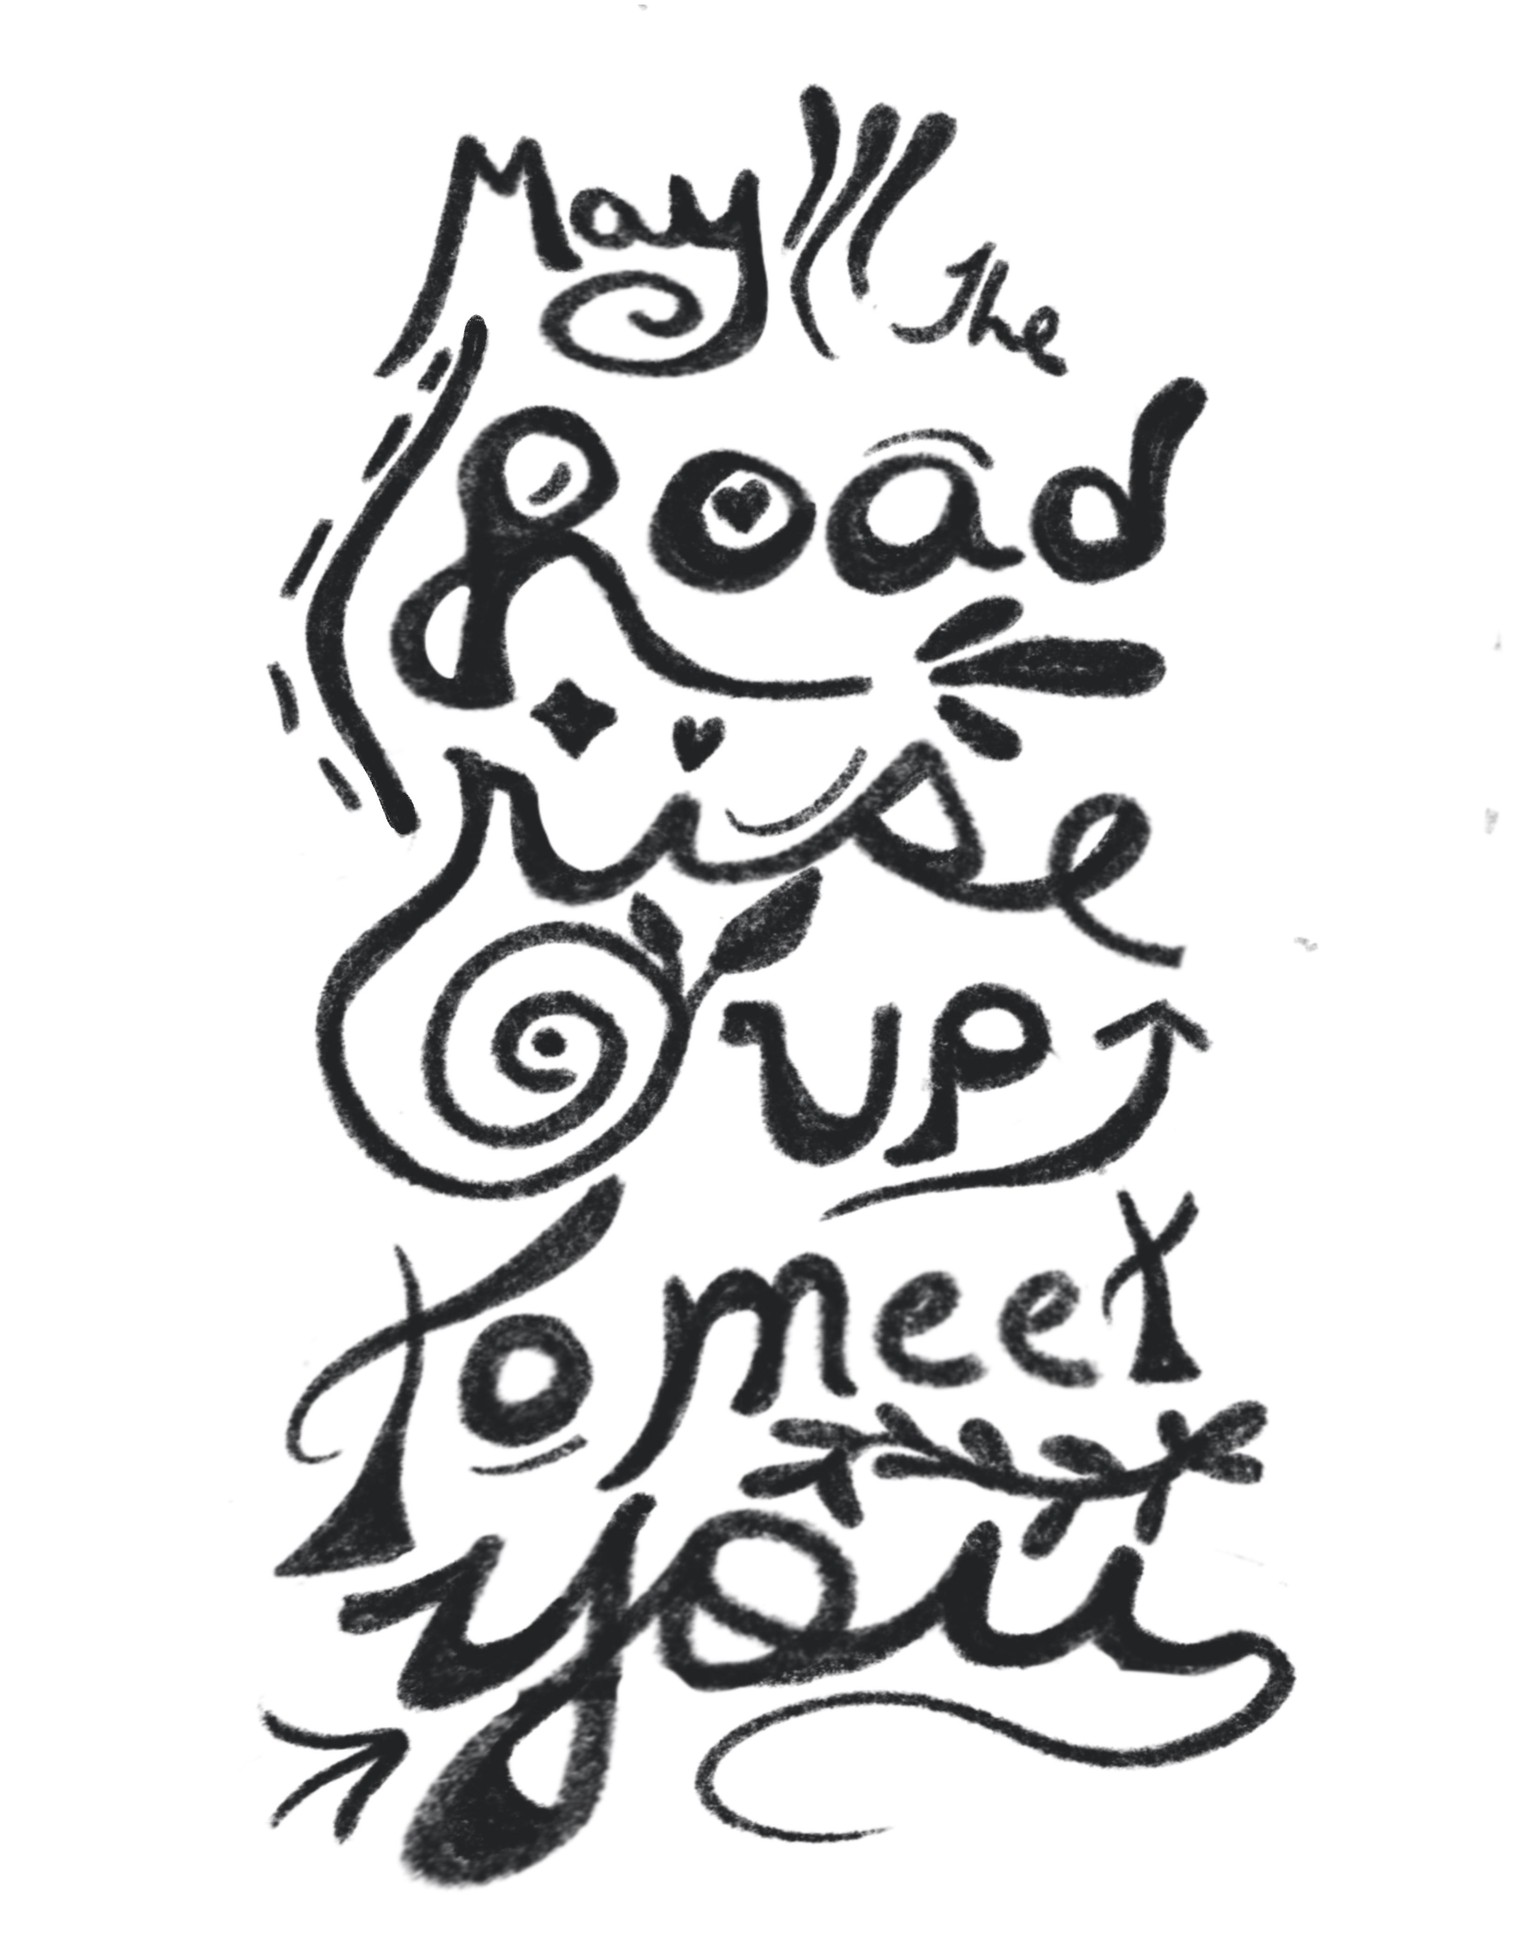 May The
Road
rise
up
To meet
you